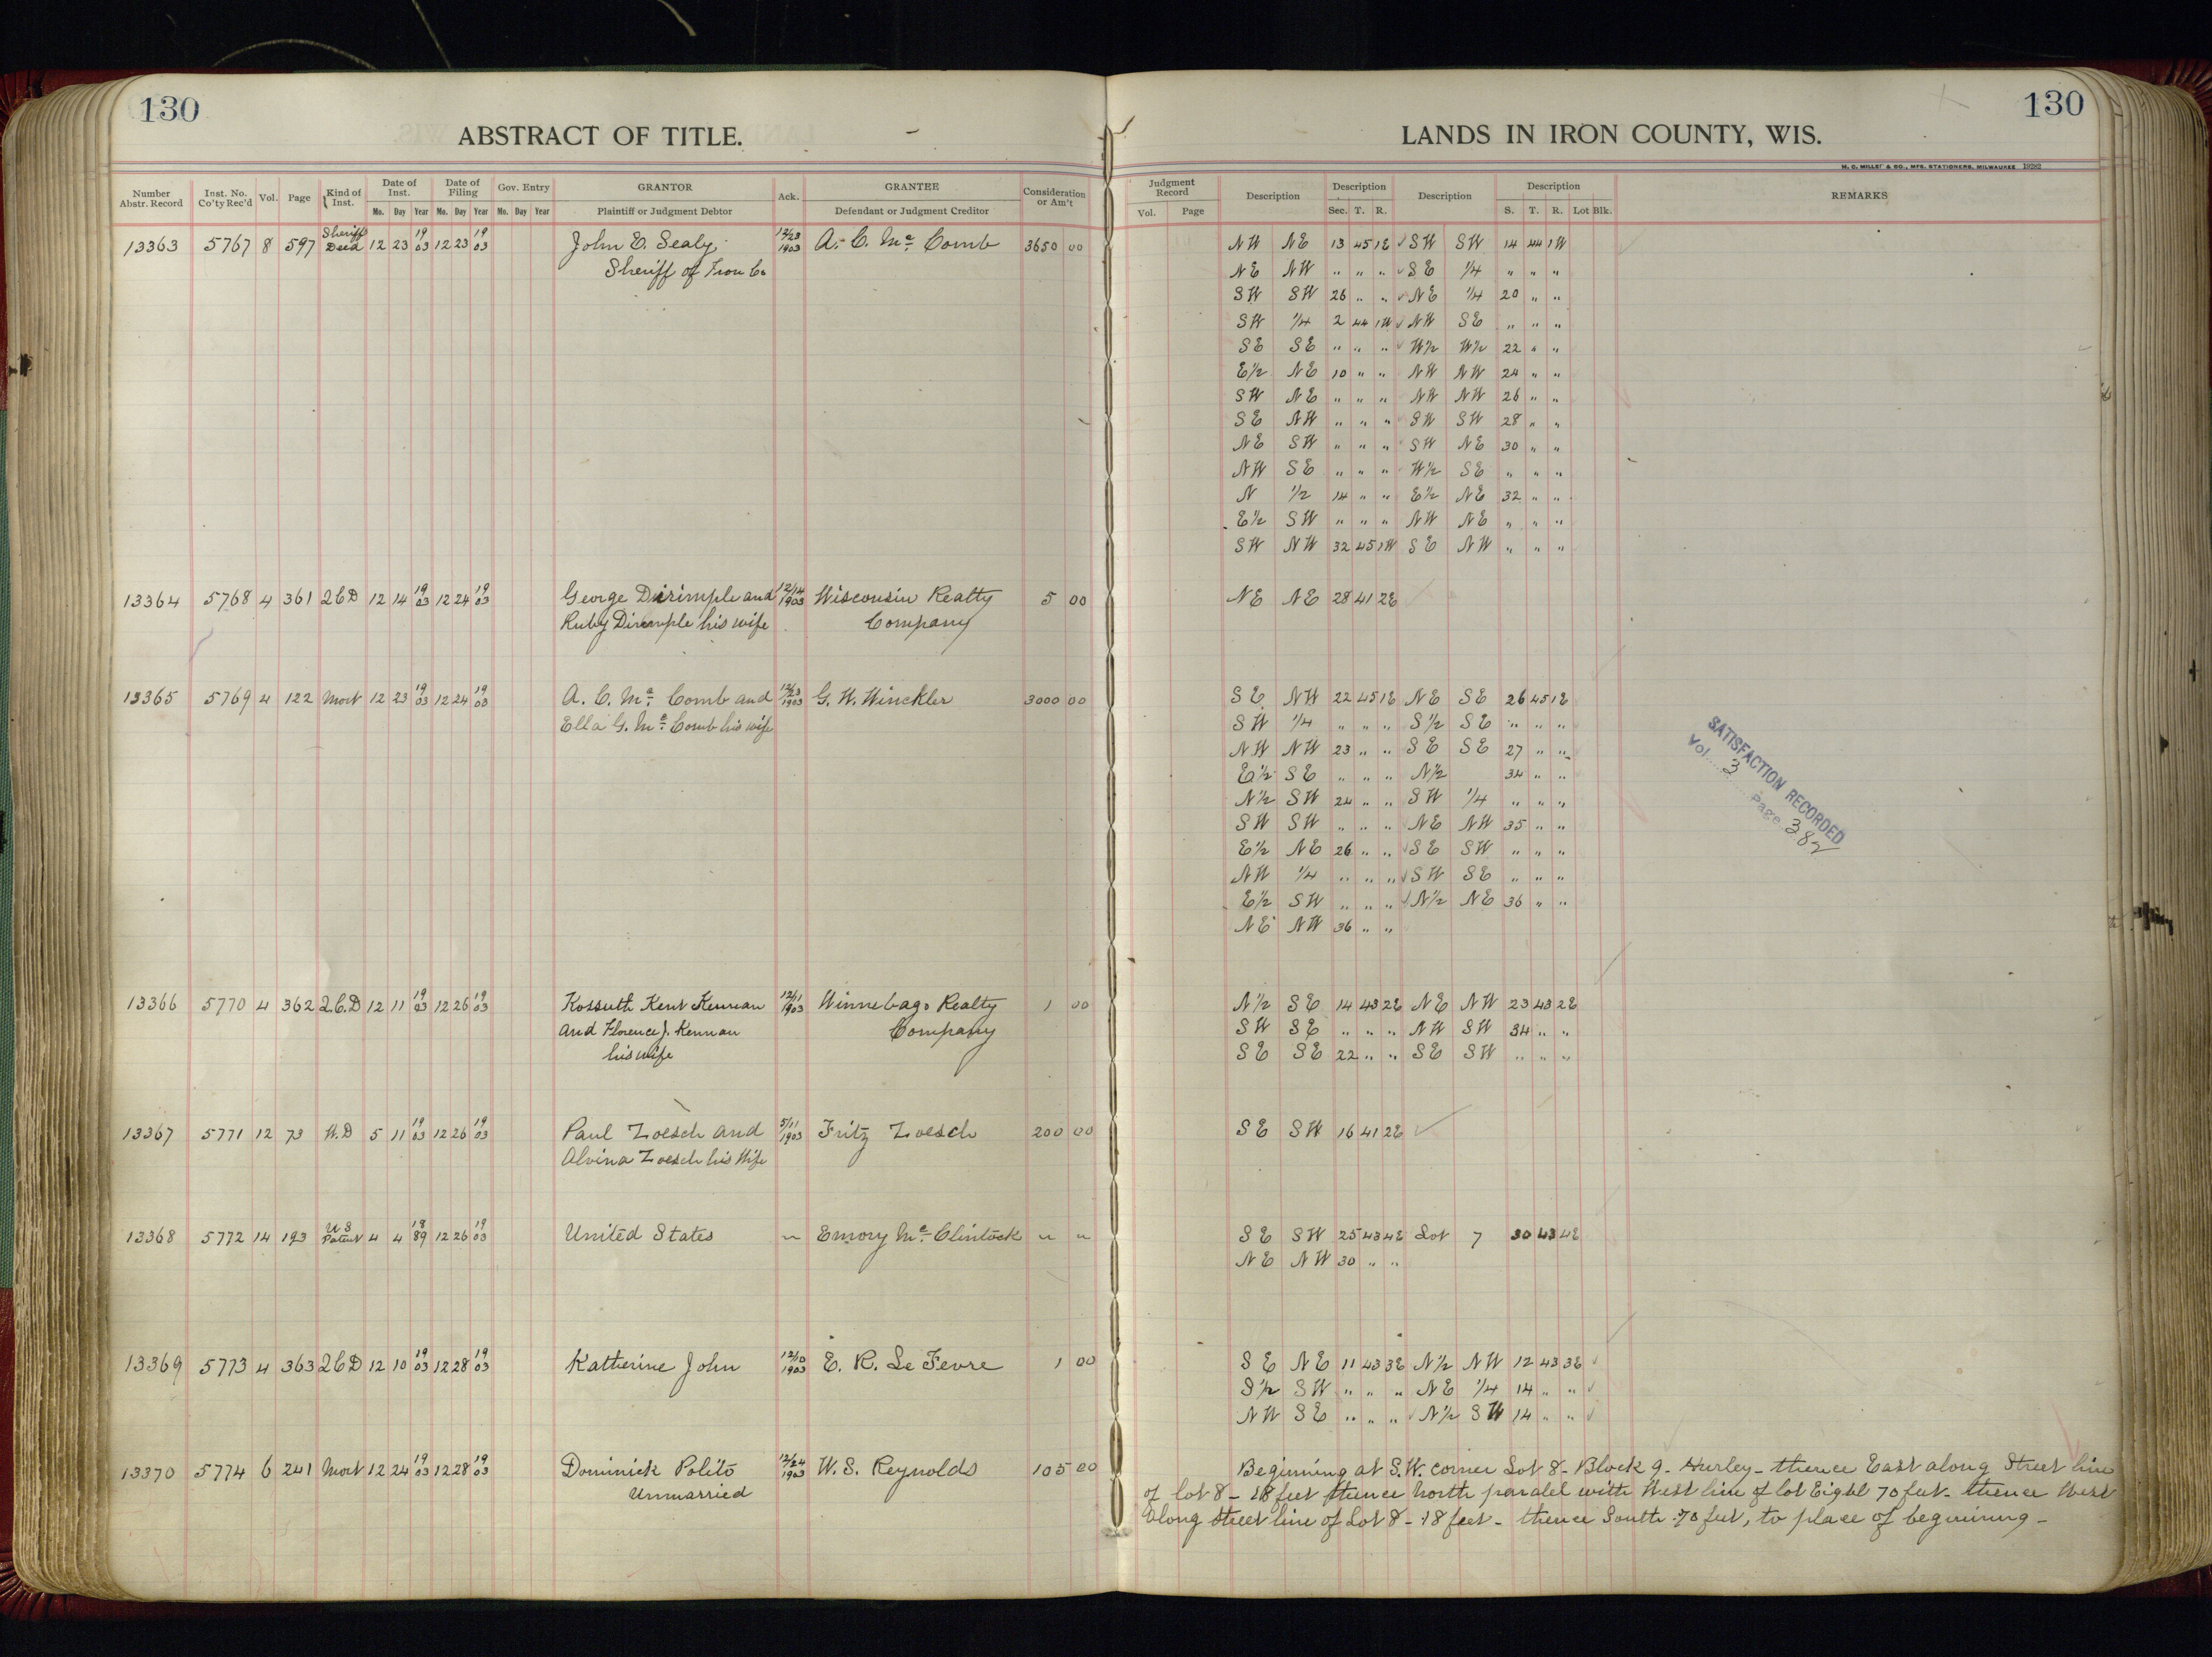 130
ABSTRACT OF TITLE.
Number Abstr. Record Inst. No. Co'ty Rec'd Vol. Page Kind of Inst. Date of Inst. Date of Filing Gov. Entry GRANTOR Ack. GRANTEE Consideration or Am't
Mo. Day Year Mo. Day Year Mo. Day Year Plaintiff or Judgment Debtor Defendant or Judgment Creditor
13363 5767 8 597 Sheriff Deed 12 23 19 03 12 23 19 03 John E. Sealy 12/23 1903 A. C. Mc Comb 3650 00
Sheriff of Iron Co
13364 5768 4 361 2CD 12 14 19 03 12 24 19 03 George Dirimple and 12/14 1903 Wisconsin Realty 5 00
Ruby Dirimple his wife Company
13365 5769 4 122 Mort 12 23 19 03 12 24 19 03 A. C. Mc Comb and 12/23 1903 G. W. Winckler 3000 00
Ella G. Mc Comb his wife
13366 5770 4 362 2.C.D 12 11 19 03 12 26 19 03 Kossuth Kent Kennan 12/11 1903 Winnebago Realty 1 00
and Florence J. Kennan Company
his wife
13367 5771 12 73 W.D 5 11 19 03 12 26 19 03 Paul Zoesch and 5/11 1903 Fritz Zoesch 200 00
Alvina Zoesch his Wife
13368 5772 14 193 US Patent 4 4 18 89 12 26 19 03 United States " Emory Mc Clintock " "
13369 5773 4 363 2CD 12 10 19 03 12 28 19 03 Katherine John 12/10 1903 E. R. Le Fevre 1 00
13370 5774 6 241 Mort 12 24 19 03 12 28 19 03 Dominick Polito 12/24 1903 W. S. Reynolds 105 00
Unmarried
130
LANDS IN IRON COUNTY, WIS.
H. C. MILLER & CO., MFG. STATIONERS, MILWAUKEE 19282
Judgment Record Description Description Description Description REMARKS
Vol. Page Sec. T. R. S. T. R. Lot Blk.
NW NE 13 45 1E SW SW 14 44 1W
NE NW " " " SE 1/4 " " "
SW SW 26 " " NE 1/4 20 " "
SW 1/4 2 44 1W NW SE " " "
SE SE " " " W1/2 W1/2 22 " "
E1/2 NE 10 " " NW NW 24 " "
SW NE " " " NW NW 26 " "
SE NW " " " SW SW 28 " "
NE SW " " " SW NE 30 " "
NW SE " " " W1/2 SE " " "
N 1/2 14 " " E1/2 NE 32 " "
E1/2 SW " " " NW NE " " "
SW NW 32 45 1W SE NW " " "
NE NE 28 41 2E
SE NW 22 45 1E NE SE 26 45 1E
SW 1/4 " " " S1/2 SE " " "
NW NW 23 " " SE SE 27 " "
E1/2 SE " " " N1/2 34 " "
N1/2 SW 24 " " SW 1/4 " " "
SW SW " " " NE NW 35 " "
E1/2 NE 26 " " SE SW " " "
NW 1/4 " " " SW SE " " "
E1/2 SW " " " N1/2 NE 36 " "
NE NW 36 " "
SATISFACTION RECORDED
Vol. 3 Page 382
N1/2 SE 14 43 2E NE NW 23 43 2E
SW SE " " " NW SW 34 " "
SE SE 22 " " SE SW " " "
SE SW 16 41 2E
SE SW 25 43 4E Lot 7 30 43 4E
NE NW 30 " "
SE NE 11 43 3E N1/2 NW 12 43 3E
S1/2 SW " " " NE 1/4 14 " "
NW SE " " " N1/2 SW 14 " "
Beginning at S.W. corner Lot 8 - Block 9 - Hurley - thence East along Street line
of lot 8 - 18 feet thence North paralel with West line of lot Eight 70 feet - thence West
along street line of Lot 8 - 18 feet - thence South 70 feet, to place of beginning -